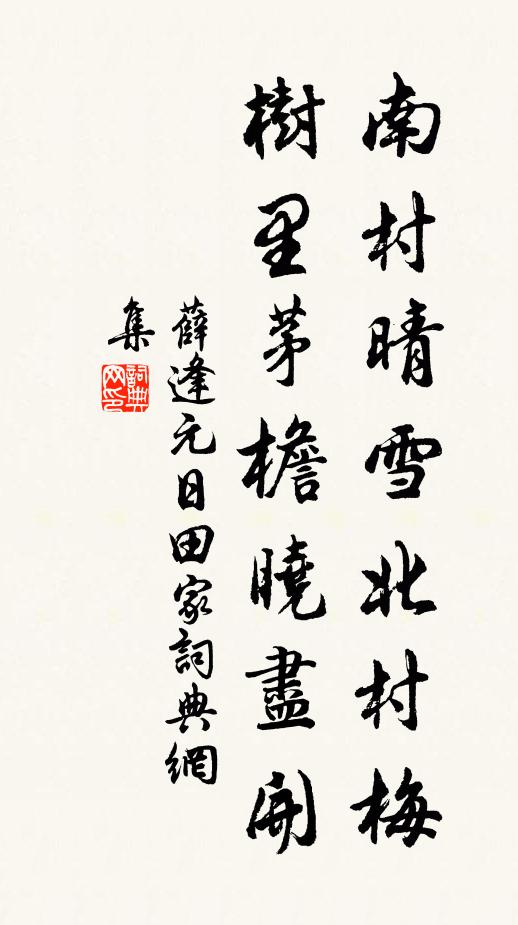 南村晴雪北村梅
樹里茅檐曉盡開
薛逢元日田家詞典網
集
詞典网印